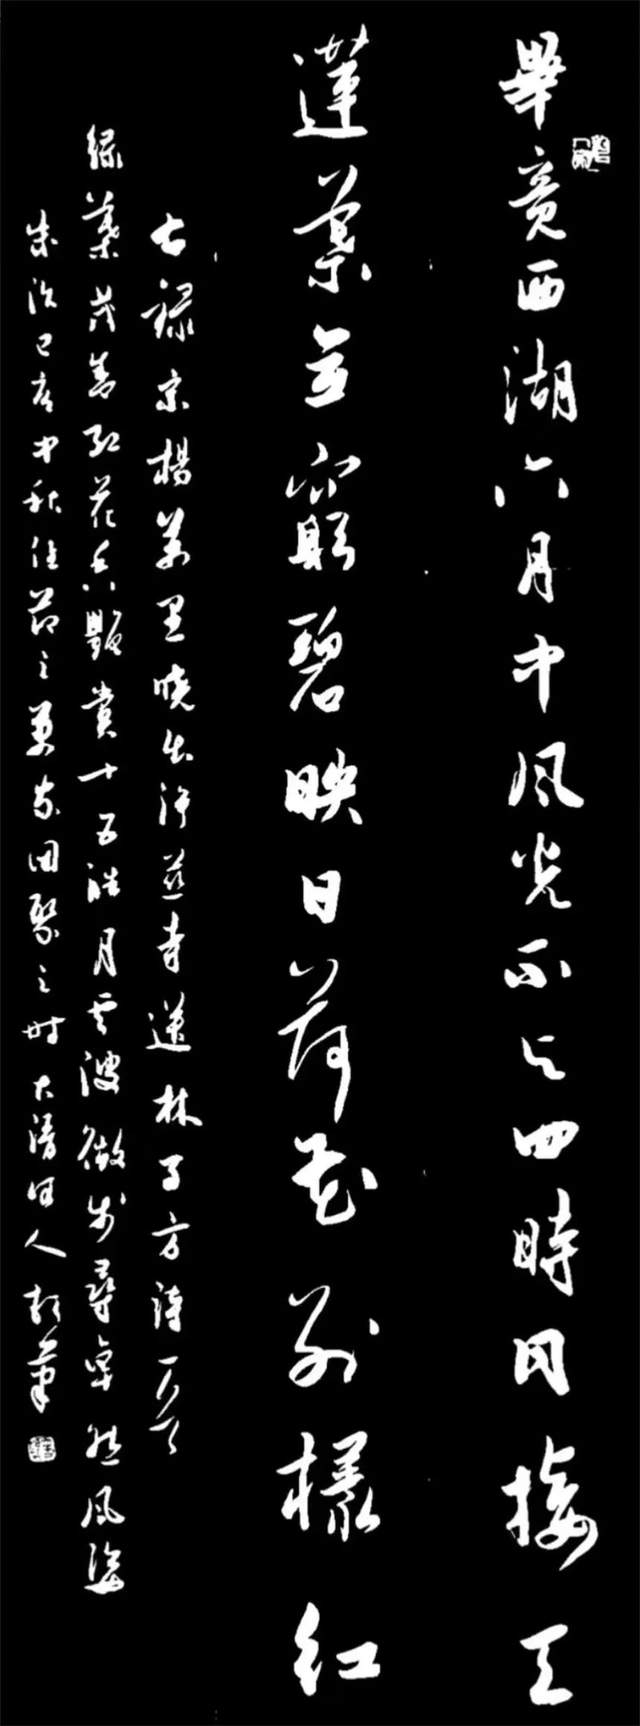 畢竟西湖六月中風光不与四時同接天
蓮葉無窮碧映日荷花別樣紅
右錄宋楊萬里曉出淨慈寺送林子方詩一首
綠葉茂紅花艷賞十五皓月雲波微步尋卓然風姿
歲次己亥中秋佳節之萬家团聚之時大清河人